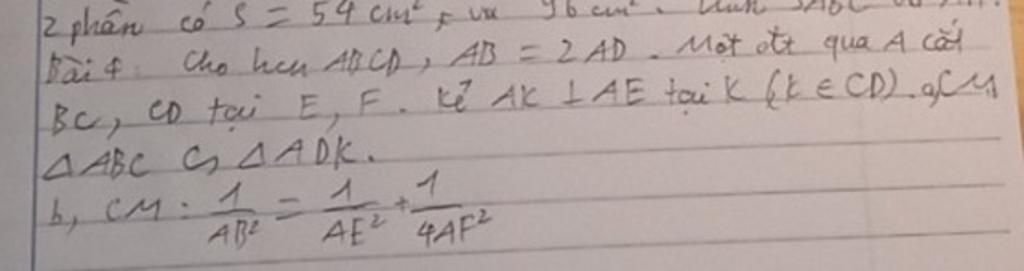 2 phần có S = 54 cm², và 96 cm². Tính SABC
Bài 4: Cho hcn ABCD, AB = 2 AD. Một đt qua A cắt
BC, CD tại E, F. Kẻ AK ⊥ AE tại K (K ∈ CD). a, CM
Δ ABC ∽ Δ ADK.
b, CM: 1/AB² = 1/AE² + 1/4AF²